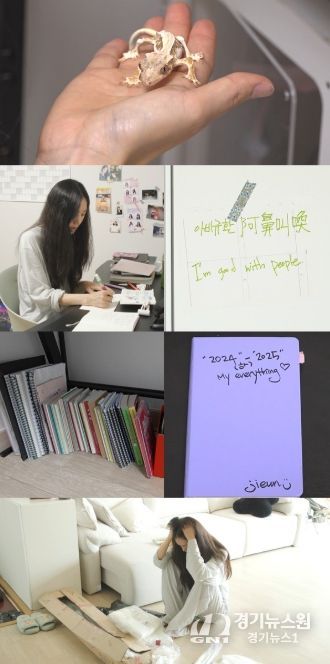 아비규환 阿鼻叫喚
I'm good with people
"2024" - "2025"
My everything♡
jieun
경기뉴스원
GN1 경기뉴스1